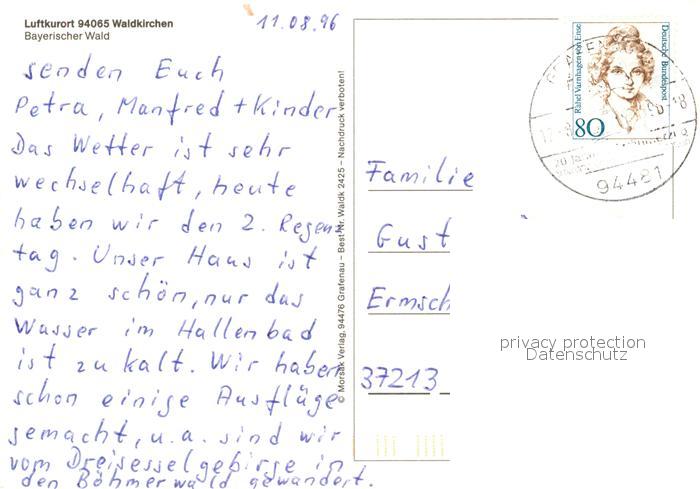 Luftkurort 94065 Waldkirchen
Bayerischer Wald
11.08.96
senden Euch
Petra, Manfred + Kinder
Das Wetter ist sehr
wechselhaft, heute
haben wir den 2. Regen-
tag. Unser Haus ist
ganz schön, nur das
Wasser im Hallenbad
ist zu kalt. Wir haben
schon einige Ausflüge
gemacht, u.a. sind wir
vom Dreisesselgebirge in
den Böhmerwald gewandert.
© Morsak Verlag, 94476 Grafenau – Best-Nr. Waldk 2425 – Nachdruck verboten!
Rahel Varnhagen von Ense
Deutsche Bundespost
80
20 Jahre
94481
Familie
Gust
Ermsch
37213
privacy protection
Datenschutz